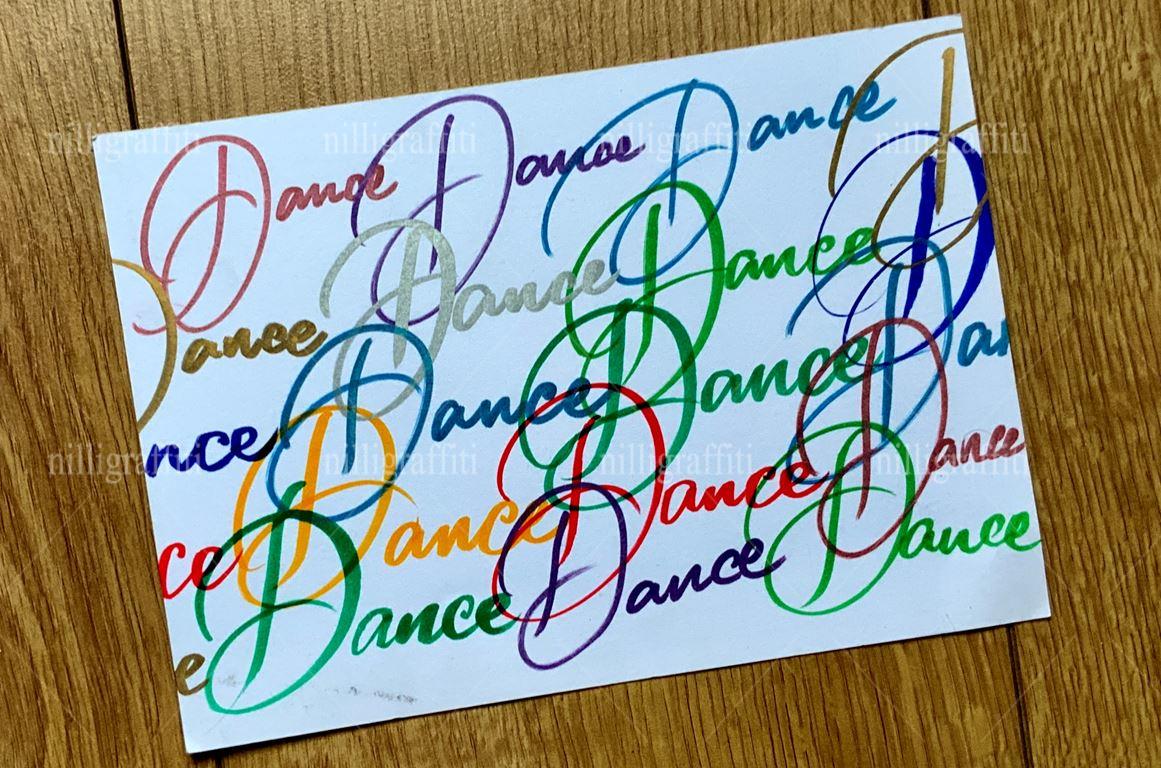 nilligraffiti nilligraffiti nilligraffiti
Dance Dance Dance D
ance Dance Dance D
nce Dance Dance Da
nilligraffiti nilligraffiti nilligraffiti
ce Dance Dance Dance
e Dance Dance Dance